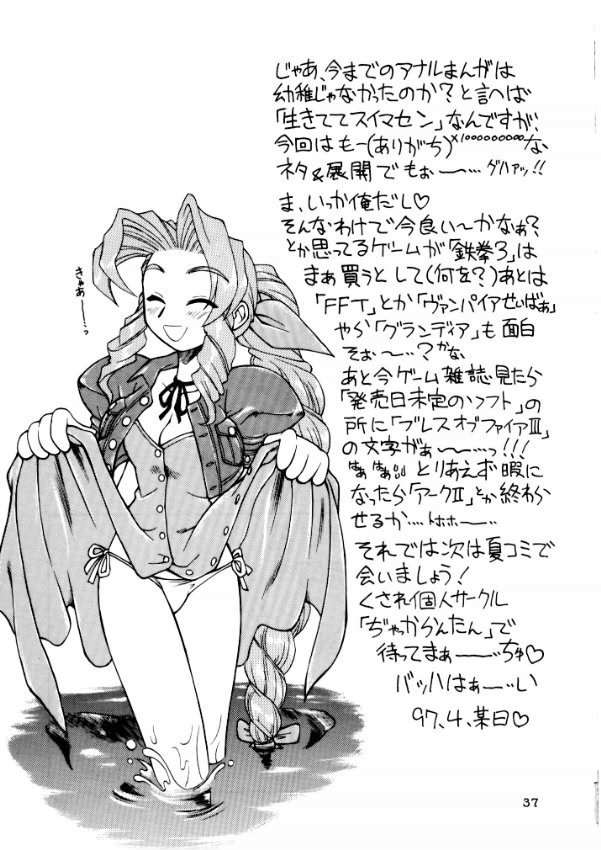 じゃあ、今までのアナルまんがは
幼稚じゃなかったのか?と言へば
「生きててスイマセン」なんですが、
今回はもー(ありがち)×10000000000な
ネタ&展開でもぉー〜…グハァッ!!
ま、いっか俺だし♡
そんなわけで今良い〜かなぁ?
とか思ってるゲームが「鉄拳3」は
まぁ買うとして(何を?)あとは
「FFT」とか「ヴァンパイアせいばぁ」
やら「グランディア」も面白
そぉ〜…?かな
あと今ゲーム雑誌見たら
「発売日未定のソフト」の
所に「ブレス オブ ファイアⅢ」
の文字がぁー〜っ!!!
はぁはぁ とりあえず暇に
なったら「アークⅡ」とか終わら
せるか…トホホー〜
それでは次は夏コミで
会いましょう!
くされ個人サークル
「ぢゃからんたん」で
待ってまぁー〜…ちゅ♡
バッハはぁー〜…い
97.4.某日♡
きゃあー〜っ
37